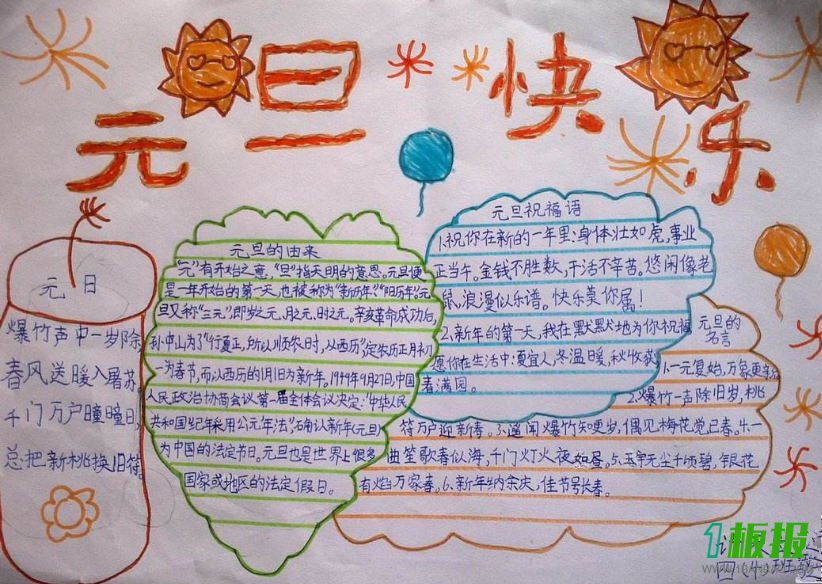 元旦快乐
元日
爆竹声中一岁除
春风送暖入屠苏
千门万户瞳瞳日
总把新桃换旧符
元旦的由来
"元"有开始之意,"旦"指天明的意思。元旦便
是一年开始的第一天,也被称为"新历年""阳历年"。元
旦又称"三元",即岁之元,月之元,时之元。辛亥革命成功后,
孙中山为了"行夏正,所以顺农时,从西历"定农历正月初
一为春节,而以西历的1月1日为新年。1949年9月27日,中国
人民政治协商会议第一届全体会议决定:"中华人民
共和国纪年采用公元年法"
确认新年(元旦)
为中国的法定节日。元旦也是世界上很多
国家或地区的法定假日。
元旦祝福语
1.祝你在新的一年里:身体壮如虎,事业
正当午。金钱不胜数,干活不辛苦。悠闲像老
鼠,浪漫似乐谱。快乐莫你属!
2.新年的第一天,我在默默地为你祝福
愿你在生活中:夏宜人,冬温暖,秋收获
春满园。
元旦的
名言
1.一元复始,万象更
2.爆竹一声除旧岁,桃
符万户迎新春。3.遥闻爆竹知更岁,偶见梅花觉已春。4.一
曲笙歌春似海,千门灯火夜如昼。5.玉宇无尘千顷碧,银花
有焰万家春。6.新年纳余庆,佳节号长春。
1板报